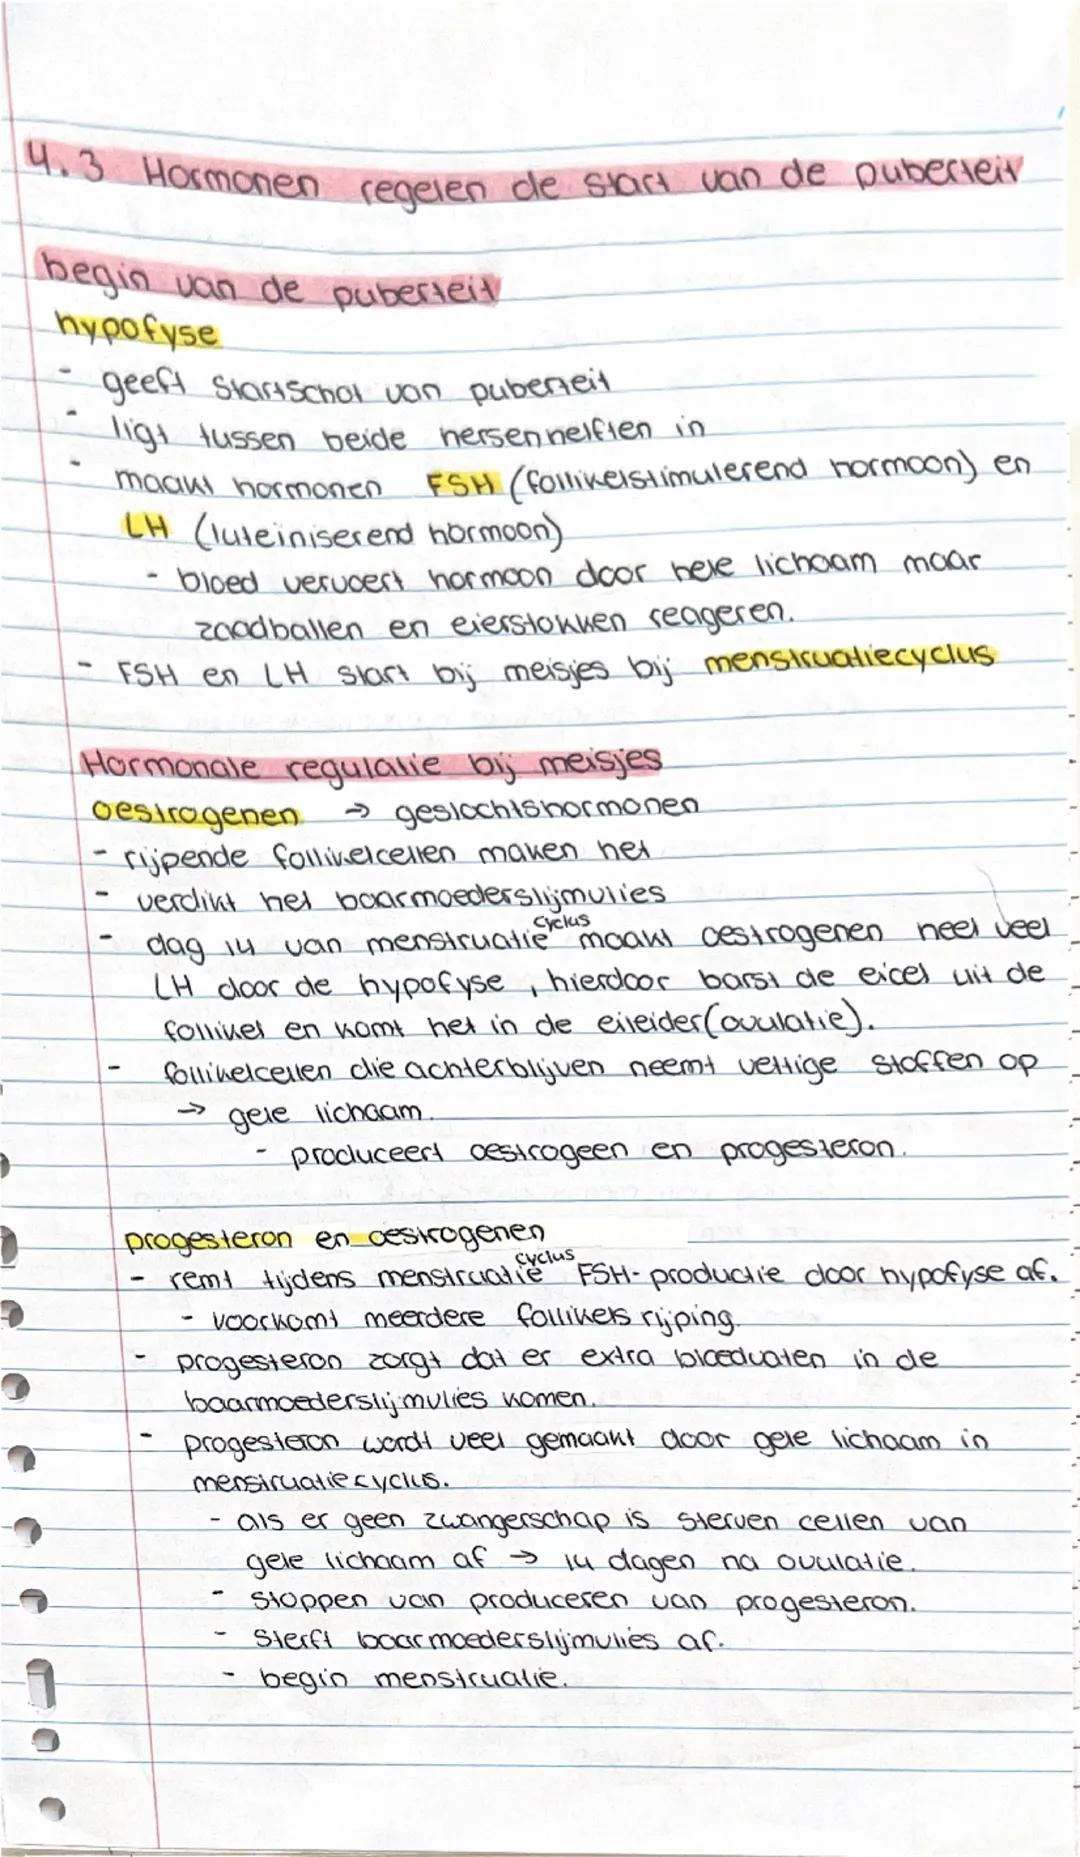 4.3 Hormonen regelen de start van de puberteit
begin van de puberteit
hypofyse
- geeft startschot van puberteit
- ligt tussen beide hersenhelften in
- maakt hormonen FSH (follikelstimulerend hormoon) en
LH (luteïniserend hormoon)
- bloed vervoert hormoon door hele lichaam maar
zaadballen en eierstokken reageren.
- FSH en LH start bij meisjes bij menstruatiecyclus
Hormonale regulatie bij meisjes
oestrogenen → geslachtshormonen
- rijpende follikelcellen maken het
- verdikt het baarmoederslijmvlies
- dag 14 van menstruatie cyclus maakt oestrogenen heel veel
LH door de hypofyse, hierdoor barst de eicel uit de
follikel en komt het in de eileider (ovulatie).
- follikelcellen die achterblijven neemt vettige stoffen op
→ gele lichaam.
- produceert oestrogeen en progesteron.
progesteron en oestrogenen
- remt tijdens menstruatie cyclus FSH-productie door hypofyse af.
- voorkomt meerdere follikels rijping.
- progesteron zorgt dat er extra bloedvaten in de
baarmoederslijmvlies komen.
- progesteron wordt veel gemaakt door gele lichaam in
menstruatiecyclus.
- als er geen zwangerschap is sterven cellen van
gele lichaam af → 14 dagen na ovulatie.
- stoppen van produceren van progesteron.
- sterft baarmoederslijmvlies af.
- begin menstruatie.